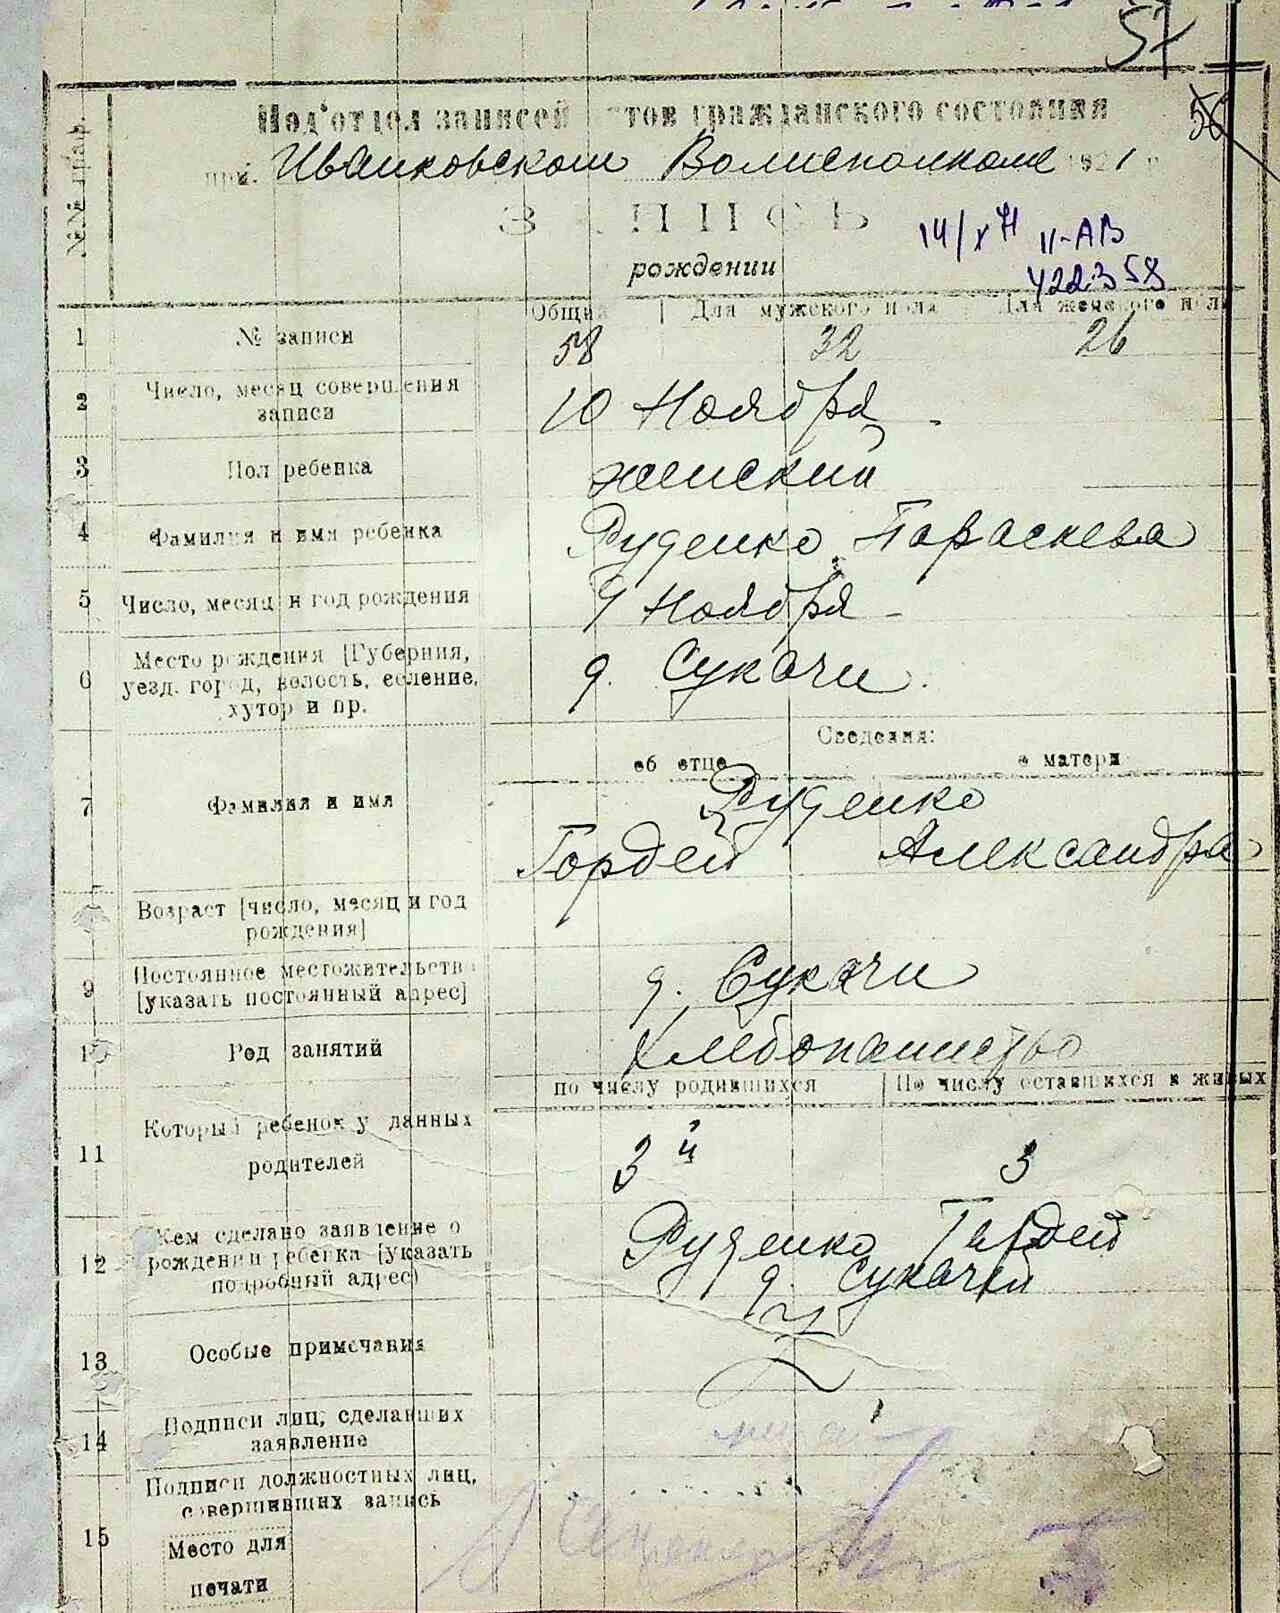 57
56
№№ граф.
Под'отдел записей тов гражданского состояния
при. Иванковском Волисполкоме 1921 г
З ПИСЬ
рождении
14/X
II-АВ
422358
Общий Для мужского пола Для женского пола
1 № записи 58 32 26
2 Число, месяц совершения записи 10 Ноября
3 Пол ребенка женский
4 Фамилия и имя ребенка Руденко Параскева
5 Число, месяц и год рождения 9 Ноября
6 Место рождения [Губерния, уезд. город, волость, селение, хутор и пр. д. Сукачи
Сведения:
об отце о матери
7 Фамилия и имя Руденко
Гордей Александра
Возраст [число, месяц и год рождения]
9 Постоянное местожительство [указать постоянный адрес] д. Сукачи
1 Род занятий Хлебопашество
по числу родившихся По числу оставшихся в живых
11 Который ребенок у данных родителей 3й 3
12 Кем сделано заявление о рождении ребенка [указать подробный адрес) Руденко Гордей
д. Сукачи
13 Особые примечания
14 Подписи лиц, сделавших заявление
15 Подписи должностных лиц, совершивших запись
Место для
печати